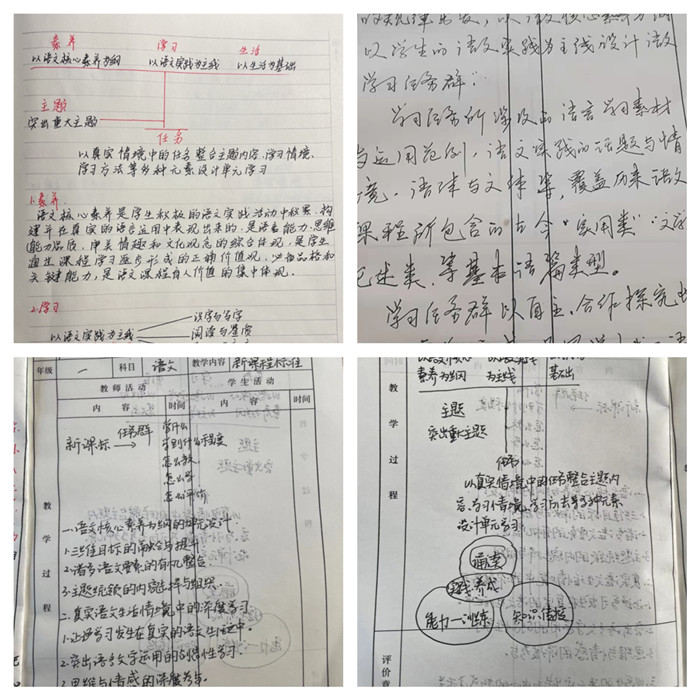 素养 学习 生活
以语文核心素养为纲 以语文实践为主线 以生活为基础
主题
突出重大主题
任务
以真实情境中的任务整合主题内容、学习情境、
学习方法等多种元素设计单元学习
1.素养
语文核心素养是学生积极的语文实践活动中积累、构
建并在真实的语言运用中表现出来的,是语言能力、思维
能力品质、审美情趣和文化观念的综合体现,是学生
通过课程学习逐步形成的正确价值观、必备品格和
关键能力,是语文课程育人价值的集中体现。
2.学习
识字与写字
以语文实践为主线 阅读与鉴赏
以学生的语文实践为主线设计语文
学习任务群。
学习任务所涉及的语言学习素材
与运用范例,语文实践的话题与情
境,语体与文体等,覆盖历来语文
课程所包含的古今“实用类”“文学
论述类”等基本语篇类型。
学习任务群以自主、合作、探究
年级 一 科目 语文 教学内容 新课程标准
教师活动 学生活动
内容 时间 内容 时间
学什么
任务群 学到什么程度
新课标 → 怎么教
怎么学
怎么评价
教学过程
一、语文核心素养为纲的单元设计
1.三维目标的融合与提升
2.诸多语文要素的有机整合
3.主题统领的内容选择与组织
二、真实语文生活情境中的深度学习
1.让学习发生在真实的语文生活中
2.突出语言文字运用的创造性学习
3.思维与情感的深度参与
素养为纲 为主线 基础出
教学过程
主题
突出重大主题
任务
以真实情境中的任务整合主题内
容、学习情境、学习方法等多种元素
设计单元学习
养成
能力—训练
评价意